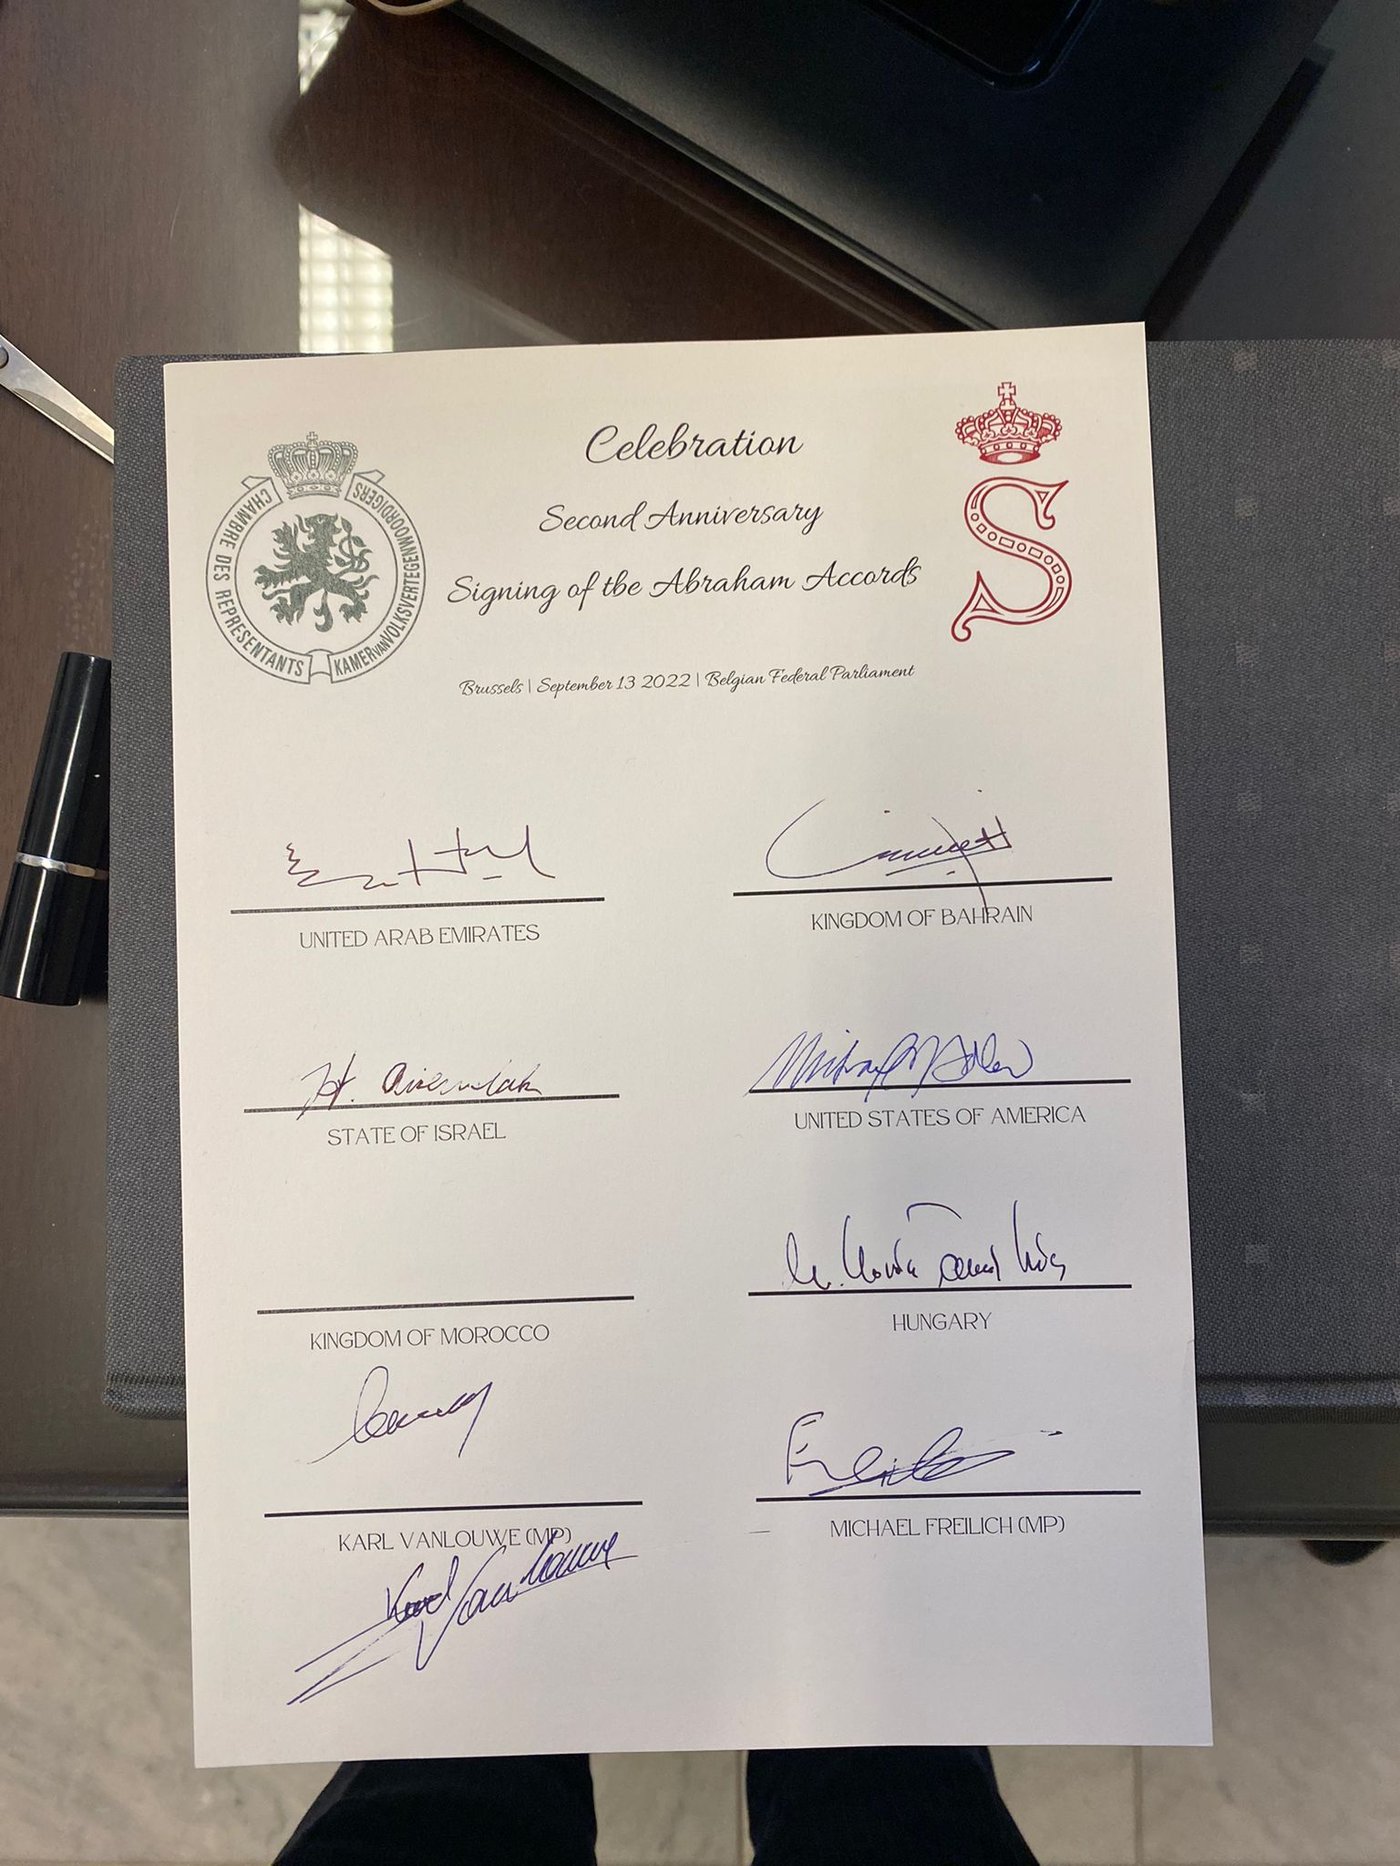 Celebration
Second Anniversary
Signing of the Abraham Accords
CHAMBRE DES REPRESENTANTS
KAMER VAN VOLKSVERTEGENWOORDIGERS
S
Brussels | September 13 2022 | Belgian Federal Parliament
UNITED ARAB EMIRATES
KINGDOM OF BAHRAIN
STATE OF ISRAEL
UNITED STATES OF AMERICA
KINGDOM OF MOROCCO
HUNGARY
Freilich
KARL VANLOUWE (MP)
MICHAEL FREILICH (MP)
Karl Vanlouwe